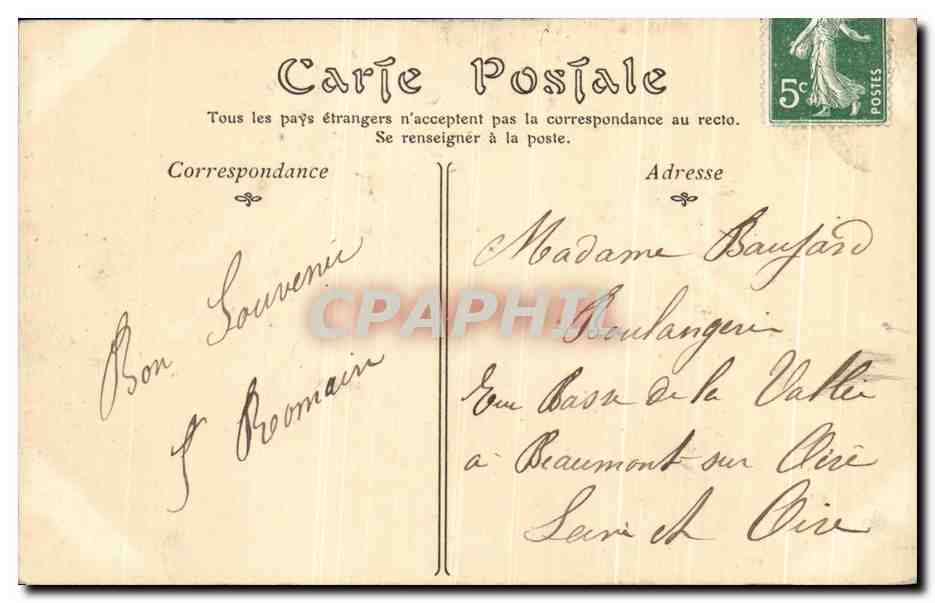 Carte Postale
5c
POSTES
Tous les pays étrangers n'acceptent pas la correspondance au recto.
Se renseigner à la poste.
Correspondance
Adresse
Bon Souvenir
S Romain
Madame
Boulangerie
Rue Basse de la Vallée
à Beaumont sur Oise
Seine et Oise
CPAPHIL